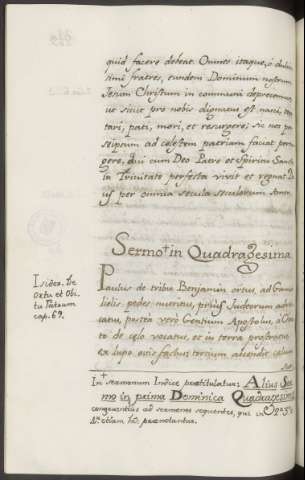 quid facere debeat. Omnes itaque, o dulcis-
simi fratres, eundem Dominum nostrum
Jesum Christum in communi deprecemur,
ut sicut pro nobis dignatus est nasci, ten-
tari, pati, mori, et resurgere; sic nos per
seipsum ad celestem patriam faciat per-
gere, qui cum Deo Patre et Spiritu Sancto
in Trinitate perfecta vivit et regnat De-
us per omnia secula seculorum Amen.
Sermo + in Quadragesima
Isidor. De
Ortu et Obi-
tu Patrum
cap. 69.
Paulus de tribu Benjamin ortus, ad Gama-
lielis pedes nutritus, prius Judeorum advo-
catus, postea vero Gentium Apostolus, a Chris-
to de celo vocatus, et in terra prostratus
ex lupo ovis factus tertium ascendit celum
In + sermonum Indice prætitulatur: Alius Ser-
mo in prima Dominica Quadragesimæ
congruentius ad sermones sequentes, qui in
etiam præenotantur.